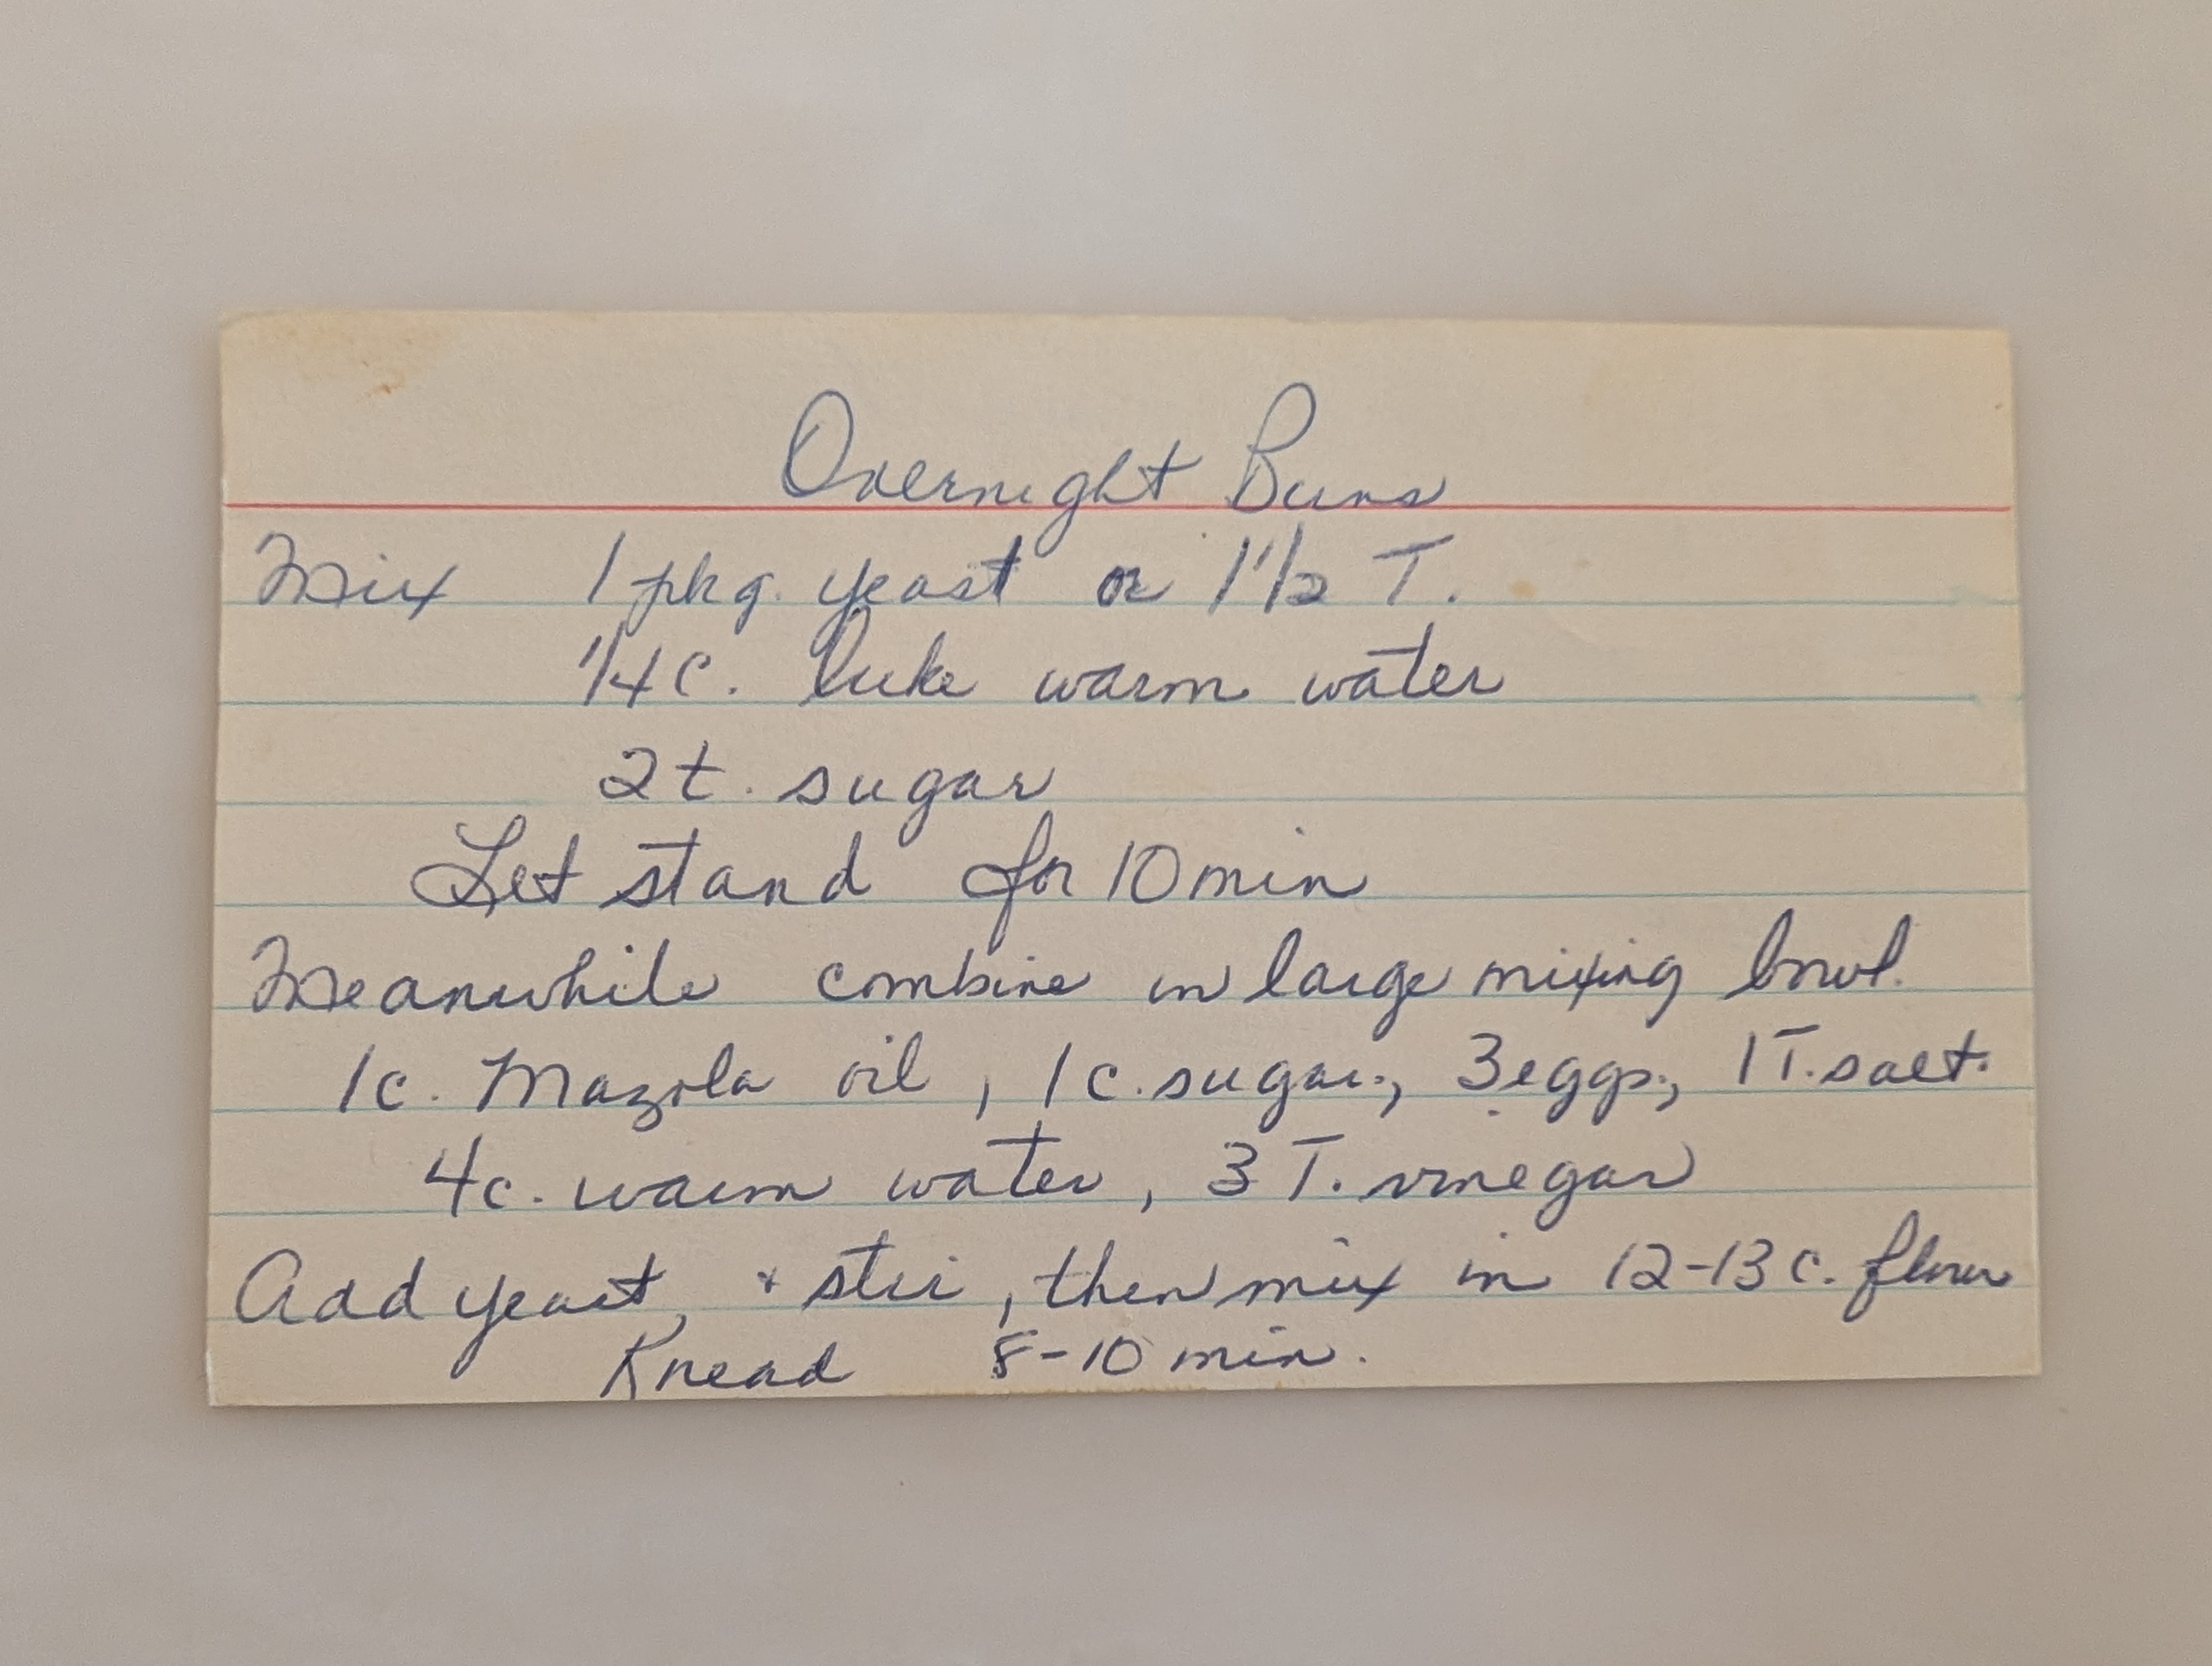 Overnight Buns
Mix 1 pkg. yeast or 1 1/2 T.
1/4 c. luke warm water
2 t. sugar
Let stand for 10 min
Meanwhile combine in large mixing bowl.
1 c. Mazola oil, 1 c. sugar, 3 eggs, 1 T. salt.
4 c. warm water, 3 T. vinegar
Add yeast, + stir, then mix in 12-13 c. flour
Knead 8-10 min.